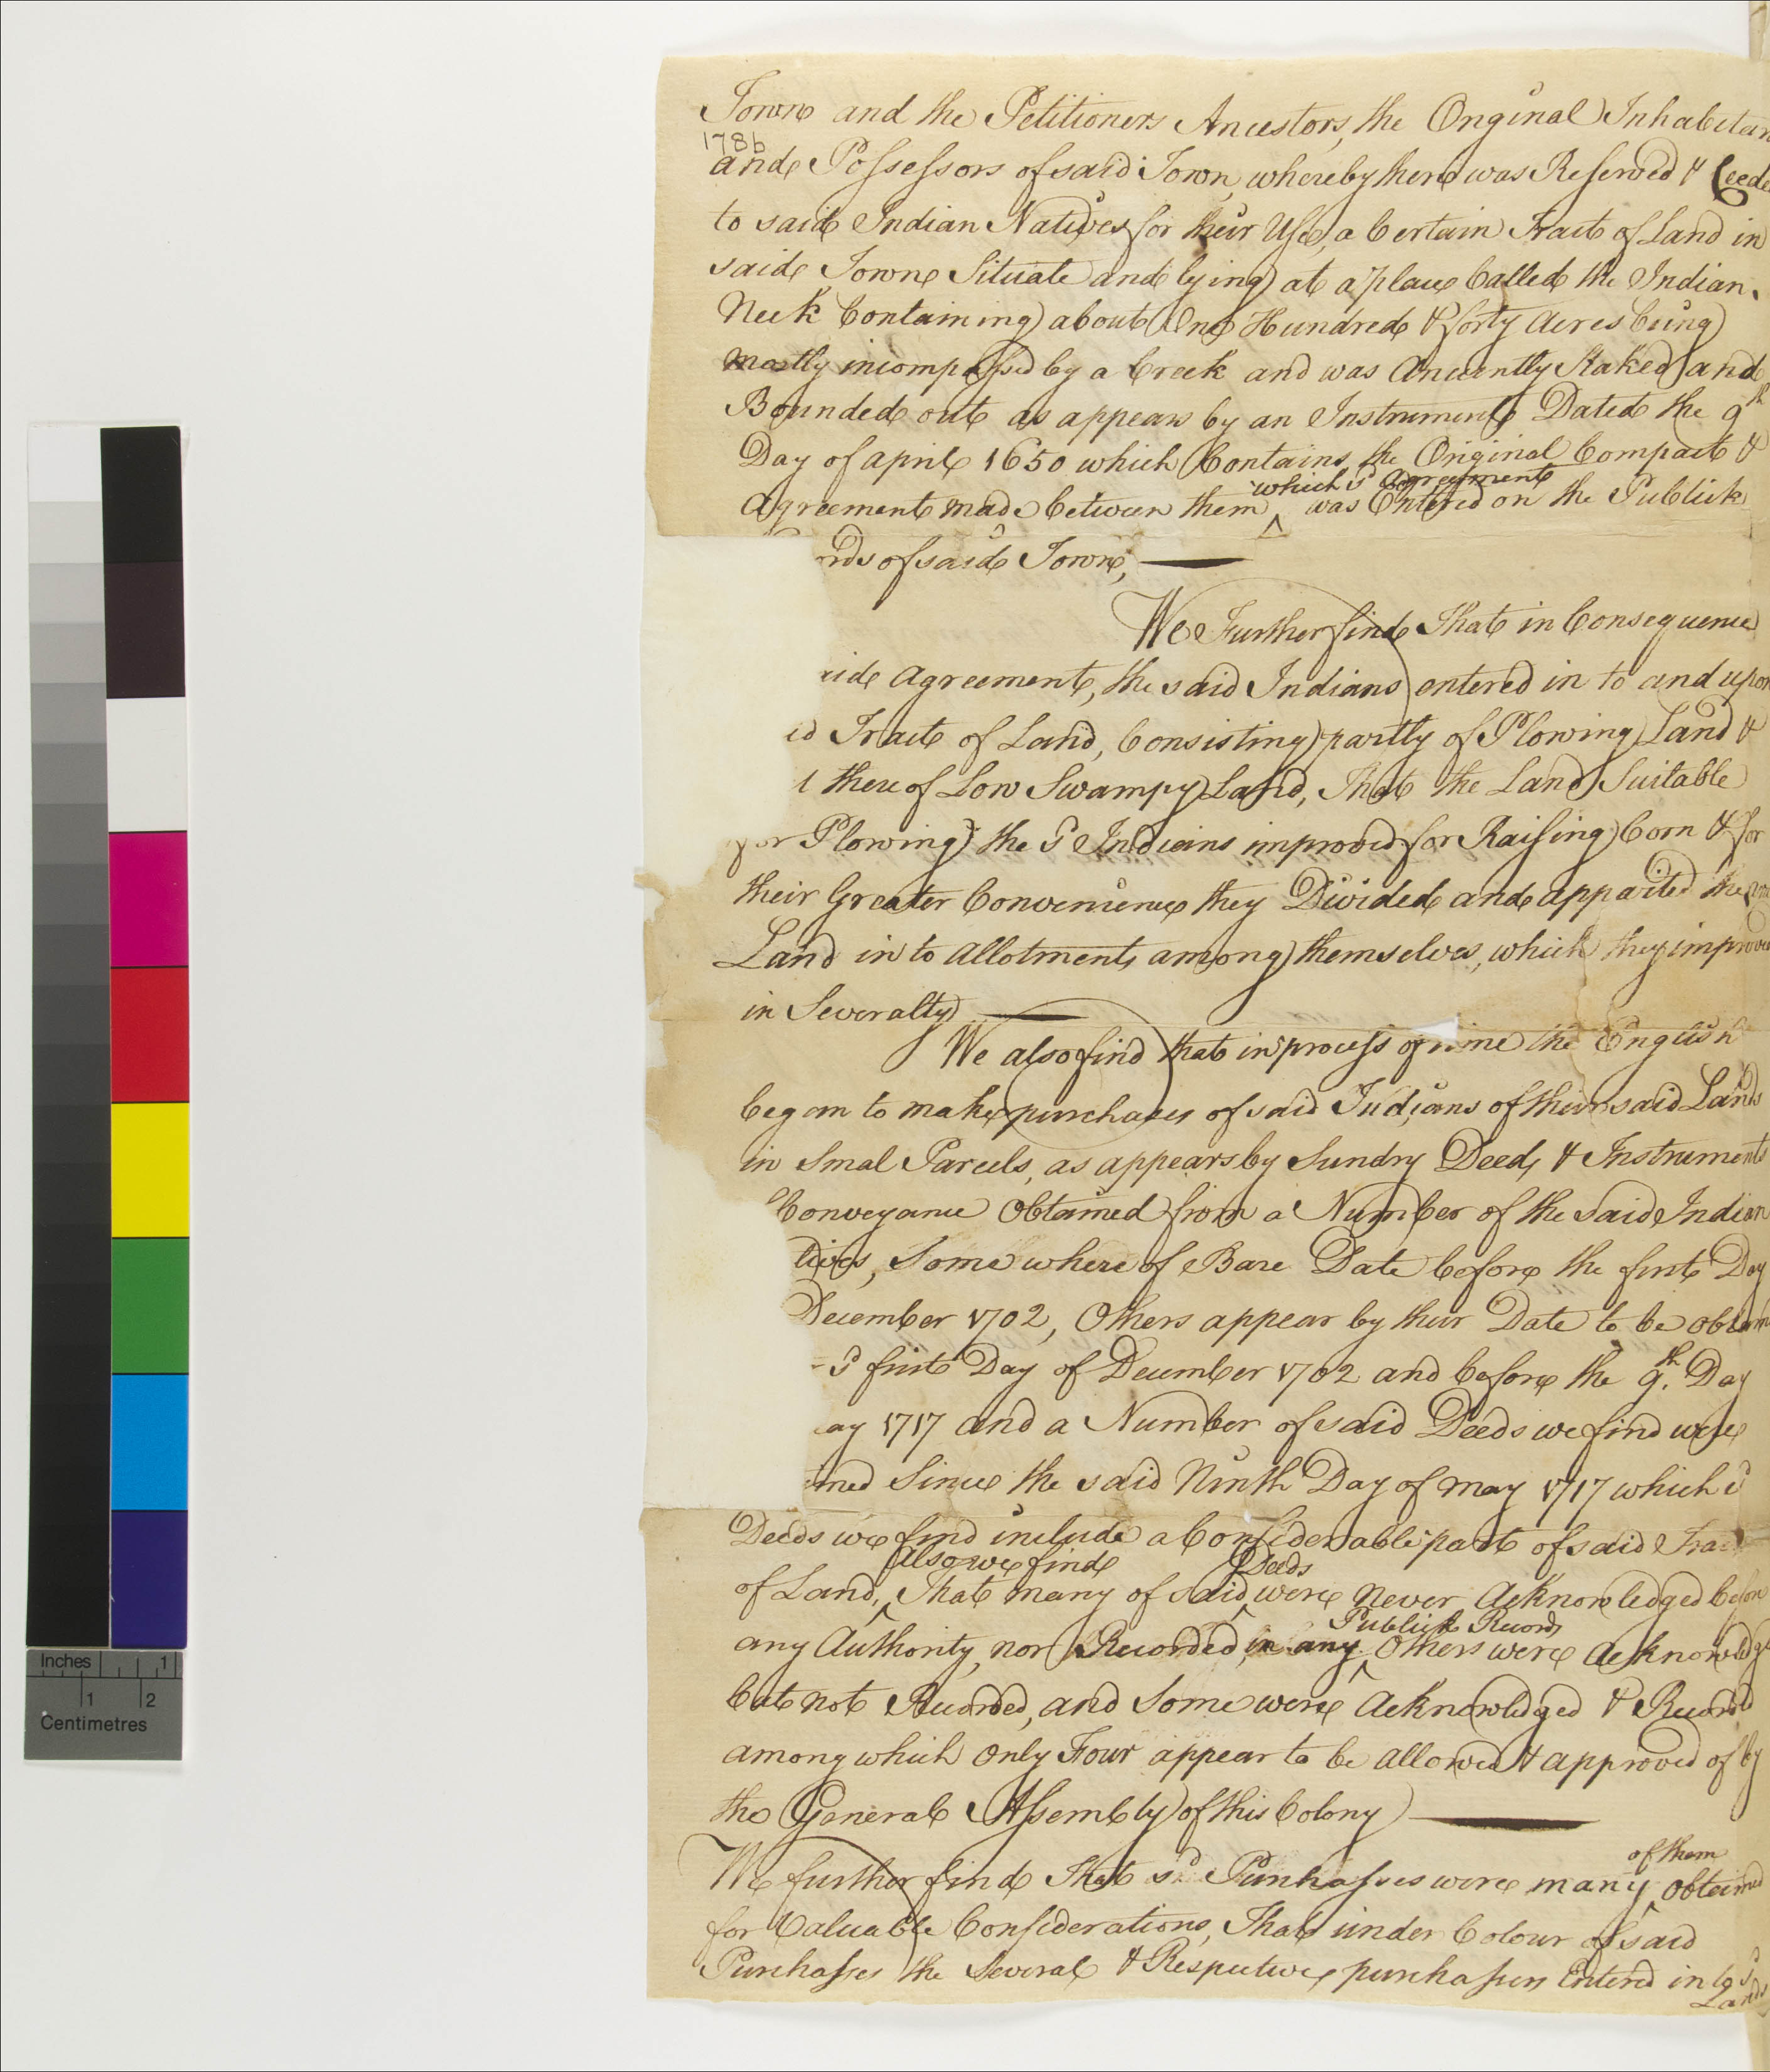 Town and the Petitioners Ancestors, the Original Inhabitan
178b
and Possessors of said Town, whereby there was Reserved & Ceede
to said Indian Natives for their Use, a Certain Tract of Land in
said Town Situate and lying at a place Called the Indian
Neck Containing about One Hundred & forty Acres being
mostly incompassed by a Creek and was Anciently Staked and
Bounded out as appears by an Instrument Dated the 9th
Day of april 1650 which Contains the Original Compact &
which sd Agreement
Agreement made between them ^ was Entered on the Publick
ords of said Town,
We Further find That in Consequence
aid Agreement, the said Indians entered in to and upon
id Tract of Land, Consisting partly of Plowing Land &
t there of Low Swampy Land, That the Land Suitable
for Plowing the sd Indians improved for Raising Corn & for
their Greater Convenience they Divided and apparted the
Land in to allotments among themselves, which they improve
in Severalty
We also find that in process of time the English
began to make purchases of said Indians of their said Lands
in Smal Parcels, as appears by Sundry Deeds & Instruments
Conveyance Obtained from a Number of the Said Indian
tives, Some where of Bare Date before the first Day
December 1702, Others appear by their Date to be obtain
sd first Day of December 1702 and before the 9th. Day
ay 1717 and a Number of said Deeds we find were
ined Since the said Ninth Day of may 1717 which sd
Deeds we find include a Considerable part of said Tract
Also we find Deeds
of Land, ^ That many of said ^ were never Acknowledged before
Publick Records
any Authority, nor Recorded, in any ^ Others were Acknowledge
but not Recorded, and Some were Acknowledged & Recorded
among which only Four appear to be allowed & approved of by
the General Assembly of this Colony
of them
We further find That sd Purchasses were many ^ obtained
for Valuable Considerations, That under Colour of said
Purchasses the Several & Respective purchasers Entered in to sd
Lands